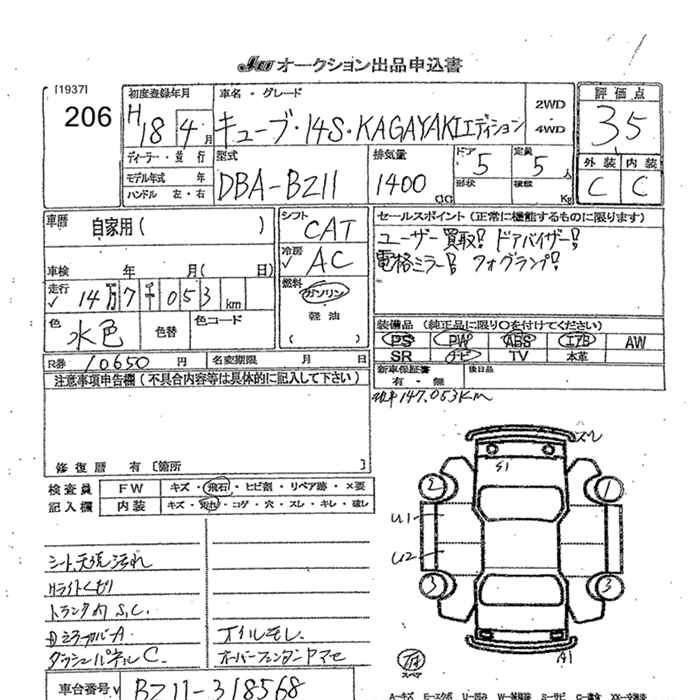 JU オークション出品申込書
[1937]
206
初度登録年月
H 18 4 月
車名・グレード
キューブ・14S・KAGAYAKIエディション
2WD
4WD
評価点
3.5
外装 内装
C C
ディーラー・並行
モデル年式 年
ハンドル 左・右
型式
DBA-BZ11
排気量
1400 CC
ドア
5
形状
定員
5 人
積載
Kg
車歴
自家用( )
車検 年 月( 日)
走行
14万7千053 km
色
水色
色替
色コード
シフト
CAT
冷房
AC
燃料
ガソリン
軽油
( )
セールスポイント(正常に機能するものに限ります)
ユーザー買取! ドアバイザー!
電格ミラー! フォグランプ!
装備品 (純正品に限り○を付けてください)
PS PW ABS エアB AW
SR ナビ TV 本革
新車保証書
有・無
後日品
R券 10650 円
名変期限 月 日
147.053Km
注意事項申告欄(不具合内容等は具体的に記入して下さい)
修復歴 有〔箇所 〕
検査員
記入欄
FW キズ・飛石・ヒビ割・リペア跡・×要
内装 キズ・汚れ・コゲ・穴・スレ・キレ・破レ
シート,天張汚れ
Hライトくもり
トランク内 S.C.
Dミラーカバー A
ダッシュパネル C.
オイルモレ.
車台番号
BZ11-318568
ズレ
S1
2
1
U1
U2
3
3
A1
スペア
A-キズ